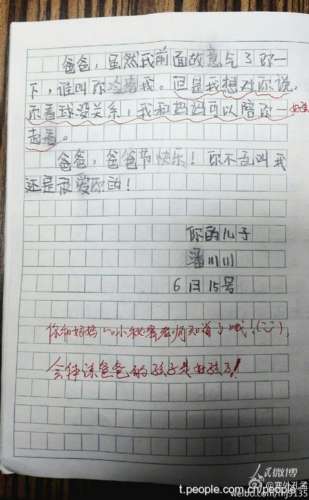 爸爸,虽然我前面故意气了你一
下,谁叫你冷落我。但是我想对你说,
你看球没关系,我和妈妈可以陪你一
起看。
爸爸,爸爸节快乐!你不在叫我
还是很爱你的!
你的儿子
潘川川
6月15号
你和妈妈的小秘密老师知道了哦!
会体谅爸爸的孩子是好孩子!
人民微博
t.people.com.cn/people